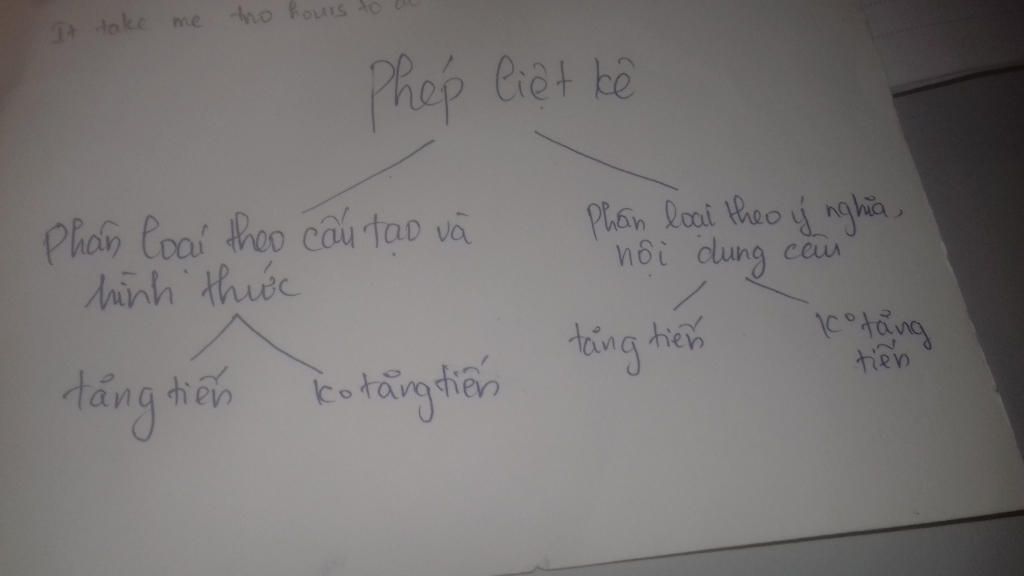 It take me two hours to
Phép liệt kê
Phân loại theo cấu tạo và
hình thức
tăng tiến
ko tăng tiến
Phân loại theo ý nghĩa,
nội dung câu
tăng tiến
ko tăng
tiến